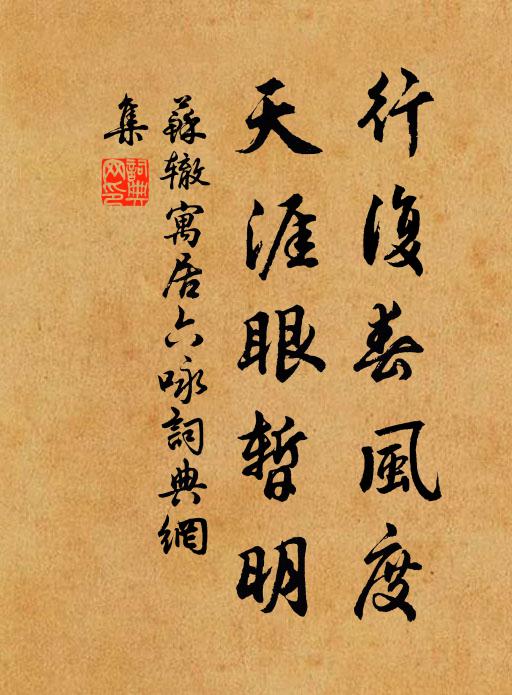 行復春風度
天涯眼暫明
蘇辙寓居六咏詞典網
集
詞典
网印